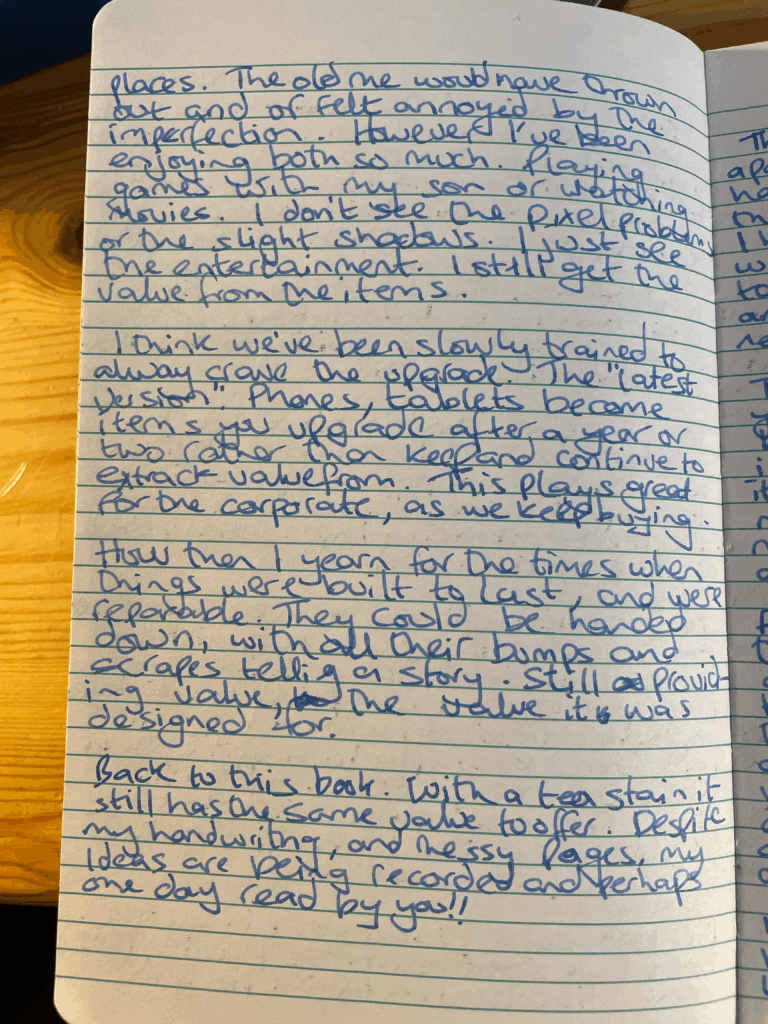 places. The old me would have thrown
out and or felt annoyed by the
imperfection. However I've been
enjoying both so much. Playing
games with my son or watching
movies. I don't see the pixel problems
or the slight shadows. I just see
the entertainment. I still get the
value from the items.
I think we've been slowly trained to
alway crave the upgrade. The "latest
version". Phones, tablets become
items you upgrade after a year or
two rather than keep and continue to
extract value from. This plays great
for the corporate, as we keep buying.
How then I yearn for the times when
things were built to last, and were
repairable. They could be handed
down, with all their bumps and
scrapes tellig a story. Still provid-
ing value, the value it was
designed for.
Back to this book. With a tea stain it
still has the same value to offer. Despite
my handwriting, and messy pages, my
ideas are being recorded and perhaps
one day read by you!!
Th